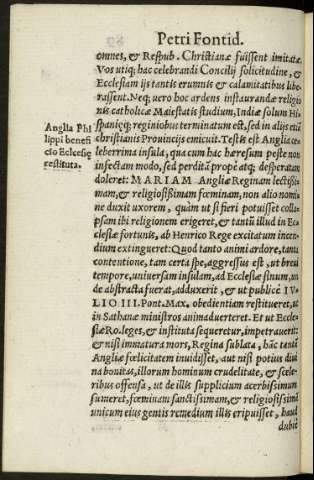 Petri Fontid.
omnes, & Respub. Christianæ fuissent imitatæ.
Vos utiq; hac celebrandi Concilij solicitudine, &
Ecclesiam ijs tantis erumnis & calamitatibus libe-
rassent. Neq; uero hoc ardens instaurandæ religio
nis catholicæ Maiestatis studium, Indiæ solum Hi-
spaniæq; reginobus terminatum est, sed in alijs etiã
christianis Prouincijs emicuit. Testis est Anglia ce
leberrima insula, qua cum hac hæresum peste non
infectam modo, sed perditã propè atq; desperatam
doleret: MARIAM Angliæ Reginam lectissi-
mam, & religiosissimam fœminam, non alio nomi-
ne duxit uxorem, quàm ut si fieri potuisset colla-
psam ibi religionem erigeret, & tantũ illud in Ec-
clesiæ fortunis, ab Henrico Rege excitatum incen-
dium extingueret: Quod tanto animi ardore, tanta
contentione, tam certa spe, aggressus est, ut breui
tempore, uniuersam insulam, ad Ecclesiæ sinum, un
de abstracta fuerat, adduxerit, & ut publicè IV-
LIO III. Pont. Max. obedientiam restitueret, ut
in Sathanæ ministros animaduerteret. Et ut Eccle-
siæ Ro. leges, & instituta sequeretur, impetrauerit:
& nisi immatura mors, Regina sublata, hãc tantã
Angliæ fœlicitatem inuidisset, aut nisi potius diui
na bonitas, illorum hominum crudelitate, & scele-
ribus offensa, ut de illis supplicium acerbissimum
sumeret, fœminam sanctissimam, & religiosissimã
unicum eius gentis remedium illis eripuisset, haud
dubiè
Anglia Phi
lippi benefi
cio Ecclesię
restituta.